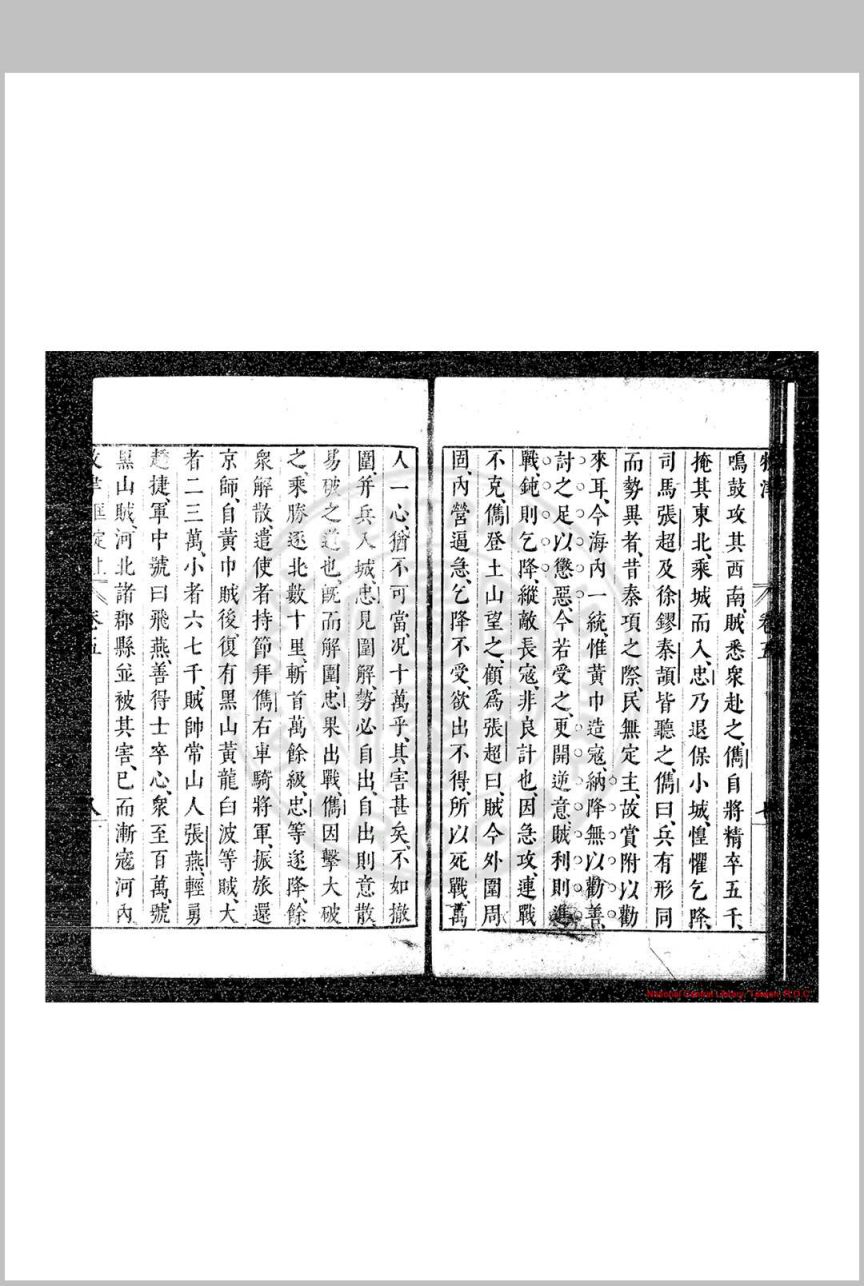 鳴鼓攻其西南、賊悉衆赴之、儁自將精卒五千、
掩其東北、乘城而入、忠乃退保小城、惶懼乞降、
司馬張超及徐鏐秦頡皆聽之、儁曰、兵有形同
而勢異者、昔秦項之際、民無定主、故賞附以勸
來耳、今海內一統、惟黃巾造寇、納降無以勸善、
討之足以懲惡、今若受之、更開逆意、賊利則進
戰、鈍則乞降、縱敵長寇、非良計也、因急攻、連戰
不克、儁登土山望之、顧爲張超曰、賊今外圍周
固、內營逼急、乞降不受、欲出不得、所以死戰、萬
人一心、猶不可當、况十萬乎、其害甚矣、不如撤
圍、并兵入城、忠見圍解、勢必自出、自出則意散、
易破之道也、旣而解圍、忠果出戰、儁因擊大破
之、乘勝逐北數十里、斬首萬餘級、忠等遂降、餘
衆解散、遣使者持節拜儁右車騎將軍、振旅還
京師、自黃巾賊後、復有黑山黃龍白波等賊、大
者二三萬、小者六七千、賊帥常山人張燕、輕勇
趫捷、軍中號曰飛燕、善得士卒心、衆至百萬、號
黑山賊、河北諸郡縣並被其害、已而漸寇河內
卷五
八